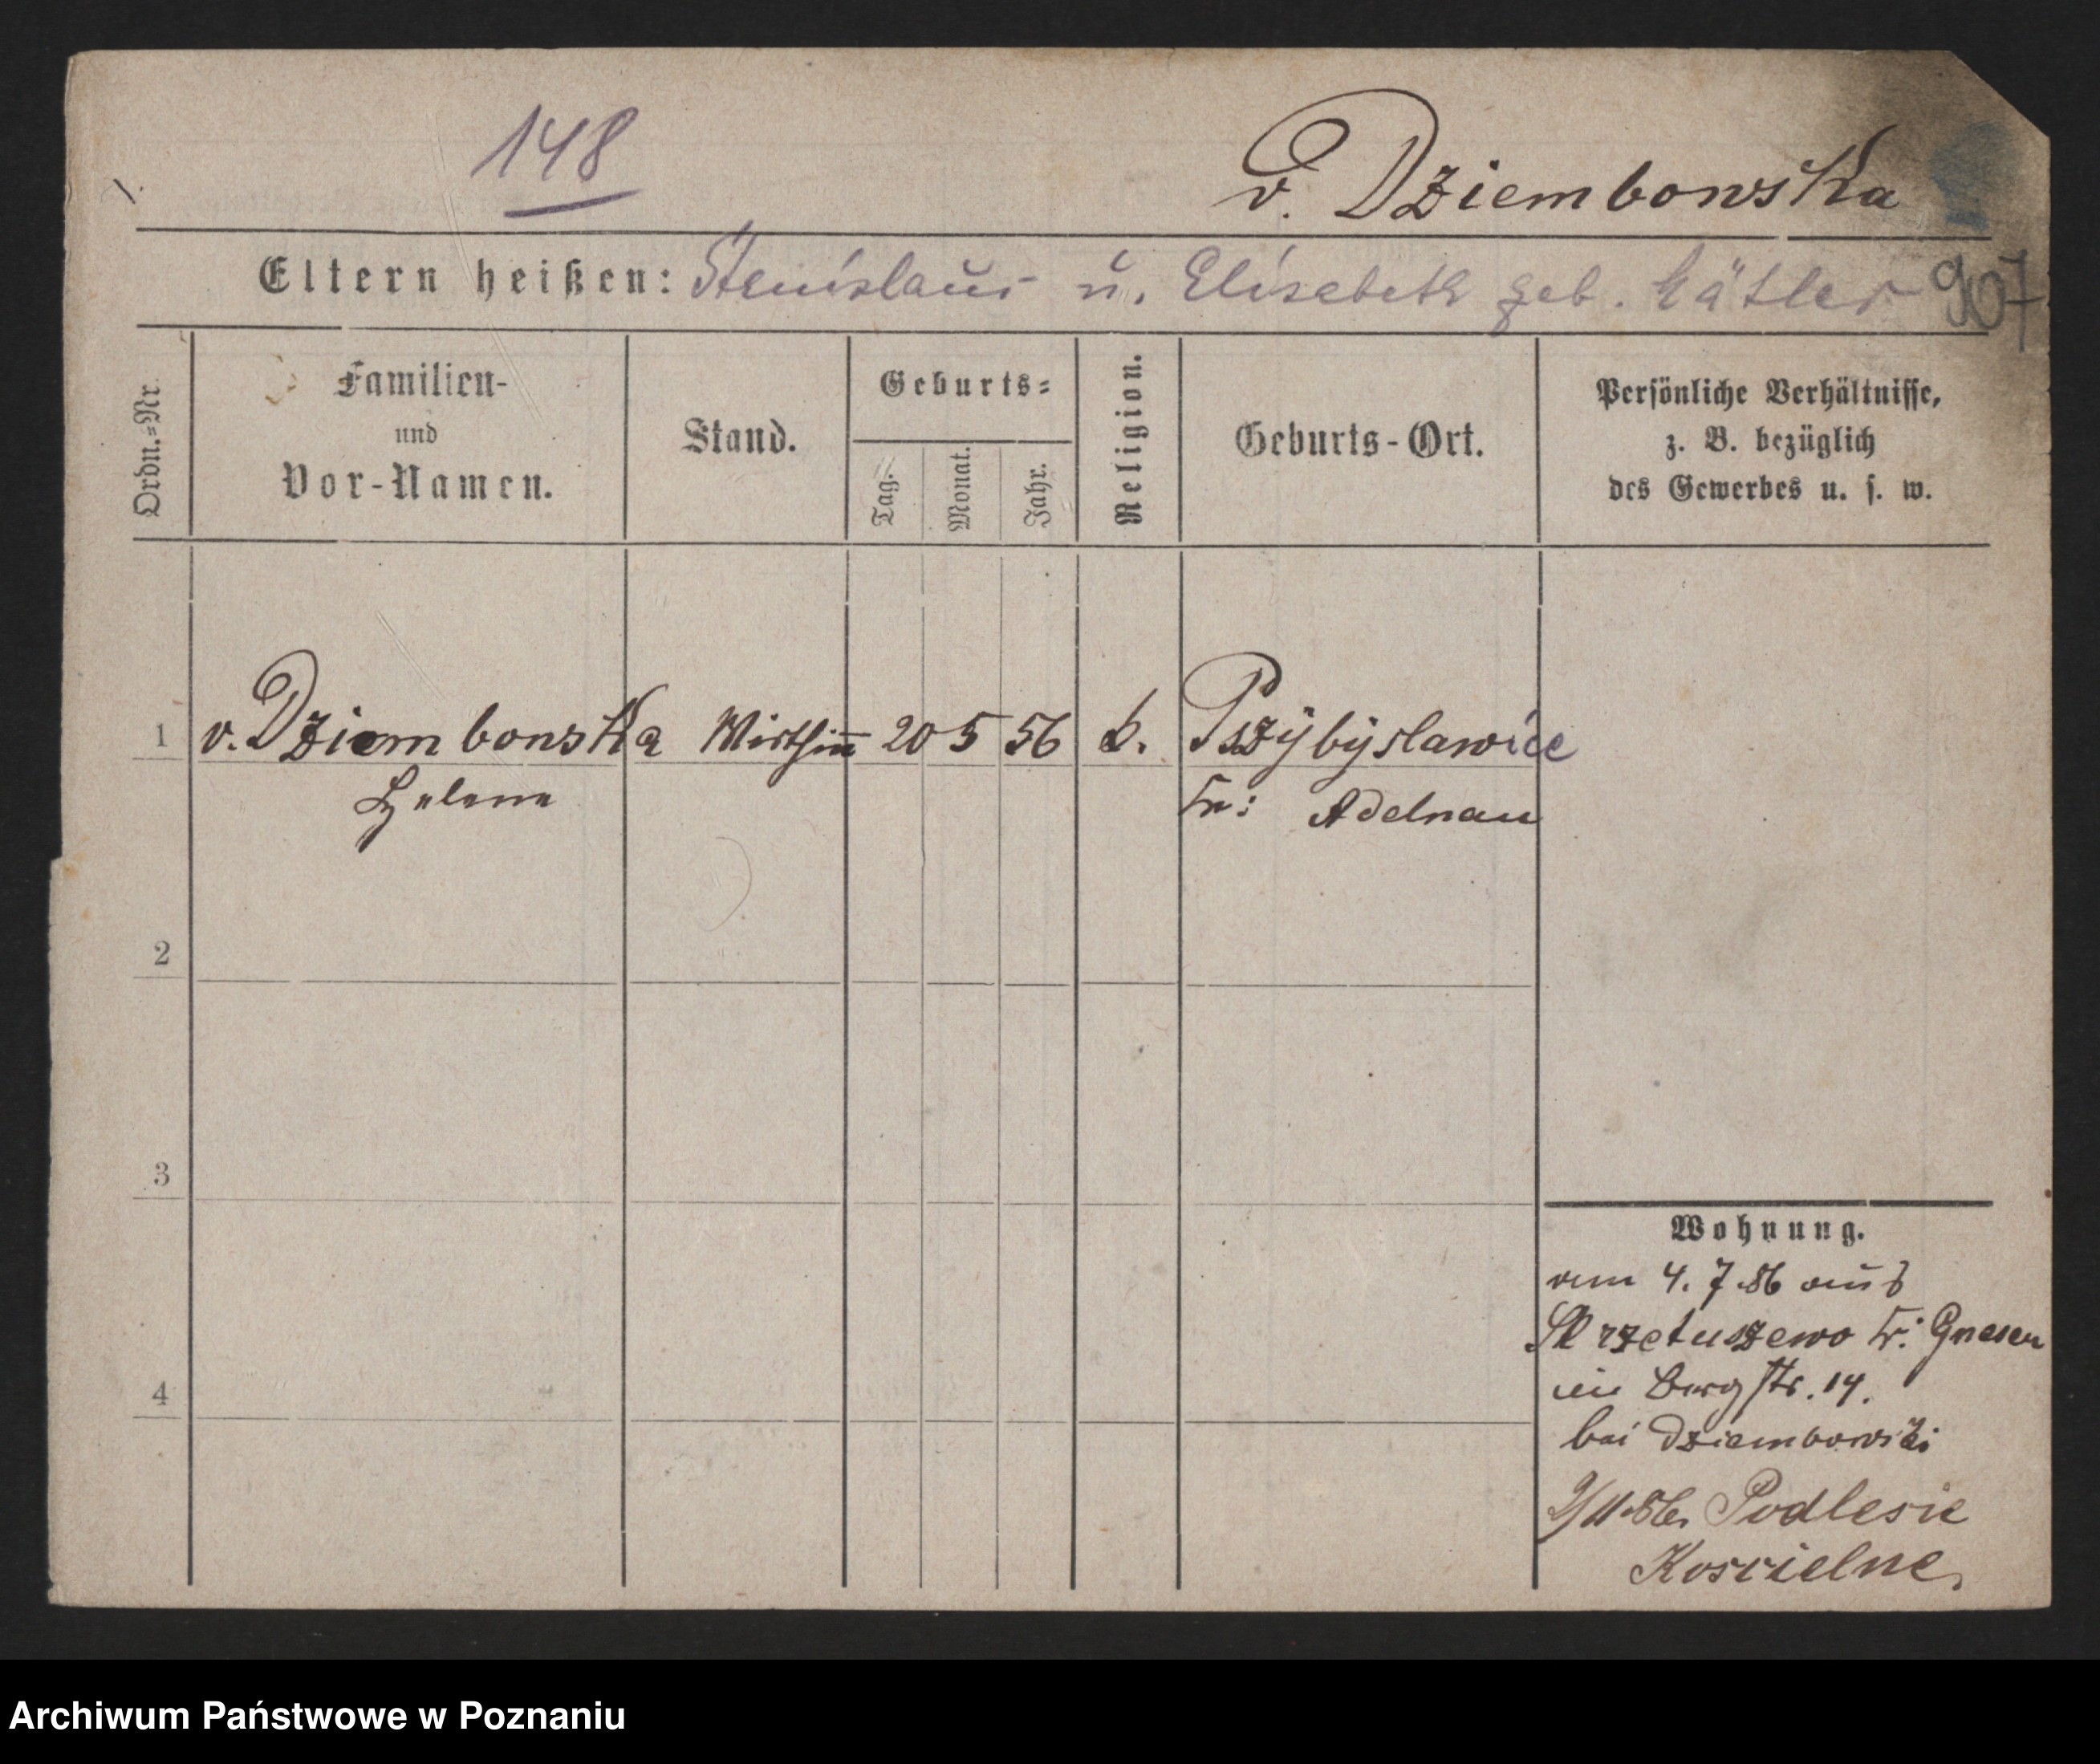 148
v. Dziembowska
Eltern heißen: Stanislaus u. Elisabeth geb.
907
Ordn.=Nr.
Familien-
und
Vor-Namen.
Stand.
Geburts=
Tag.
Monat.
Jahr.
Religion.
Geburts-Ort.
Persönliche Verhältnisse,
z. B. bezüglich
des Gewerbes u. s. w.
1 v. Dziembowska Wirthin 20 5 56 k. Pszybyslawice
Helene Kr: Adelnau
2
3
4
Wohnung.
vom 4. 7. 86 aus
Skrzetuszewo Kr: Gnesen
in Bergstr. 14.
bei Dziembowski
9/11.86. Podlesie
Koscielne.
Archiwum Państwowe w Poznaniu